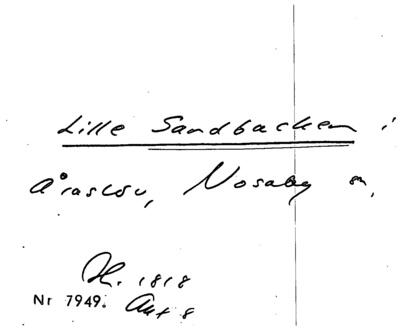 Lille Sandbacken i
Åraslöv, Nosaby sn.
H. 1818
Nr 7949. Akt 8